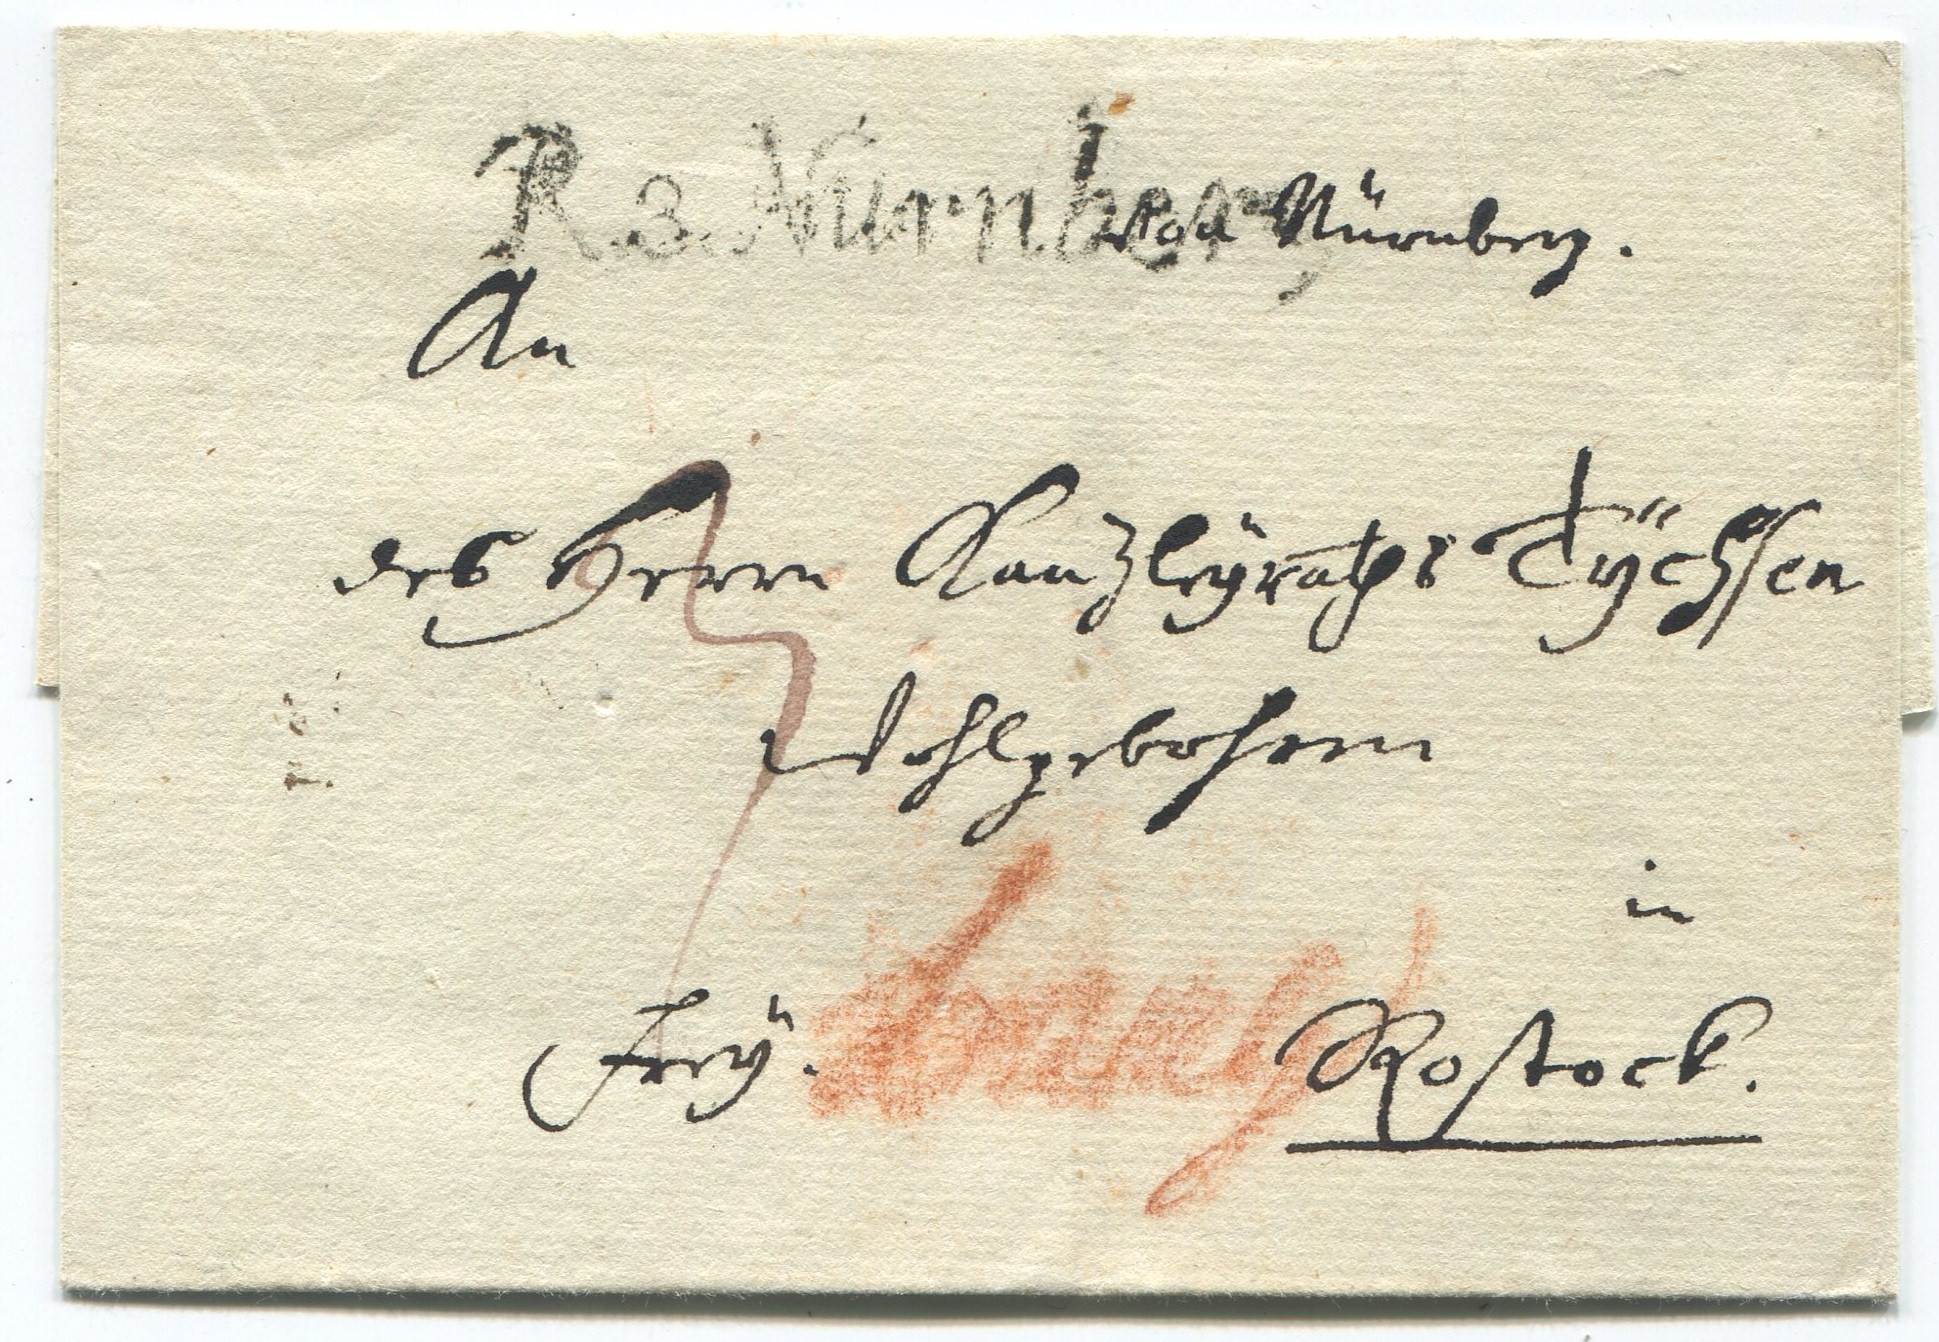 R.3. Nürnberg
von Nürnberg.
An
des Herrn Kanzleyraths Tÿchsen
Wohlgebohrn
in
Freÿ. Rostock.